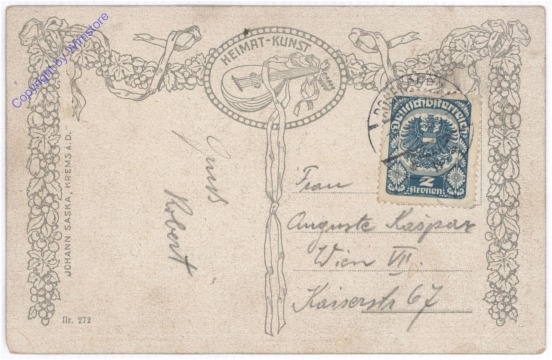 Copyright by Wmstore
HEIMAT-KUNST
JOHANN SASKA, KREMS A.D.
Nr. 272
Gruß
Robert
Deutschösterreich
2
Kronen
Frau
Auguste Kašpar
Wien VII.
Kaiserstr 67